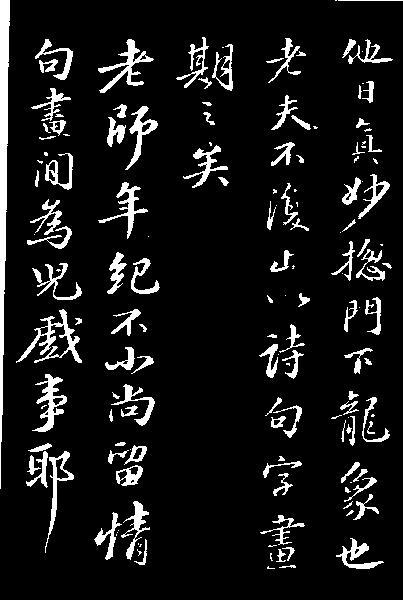 他日真妙摠門下龍象也
老夫不復止以詩句字畫
期之矣
老師年紀不小尚留情
句畫間為兒戲事耶